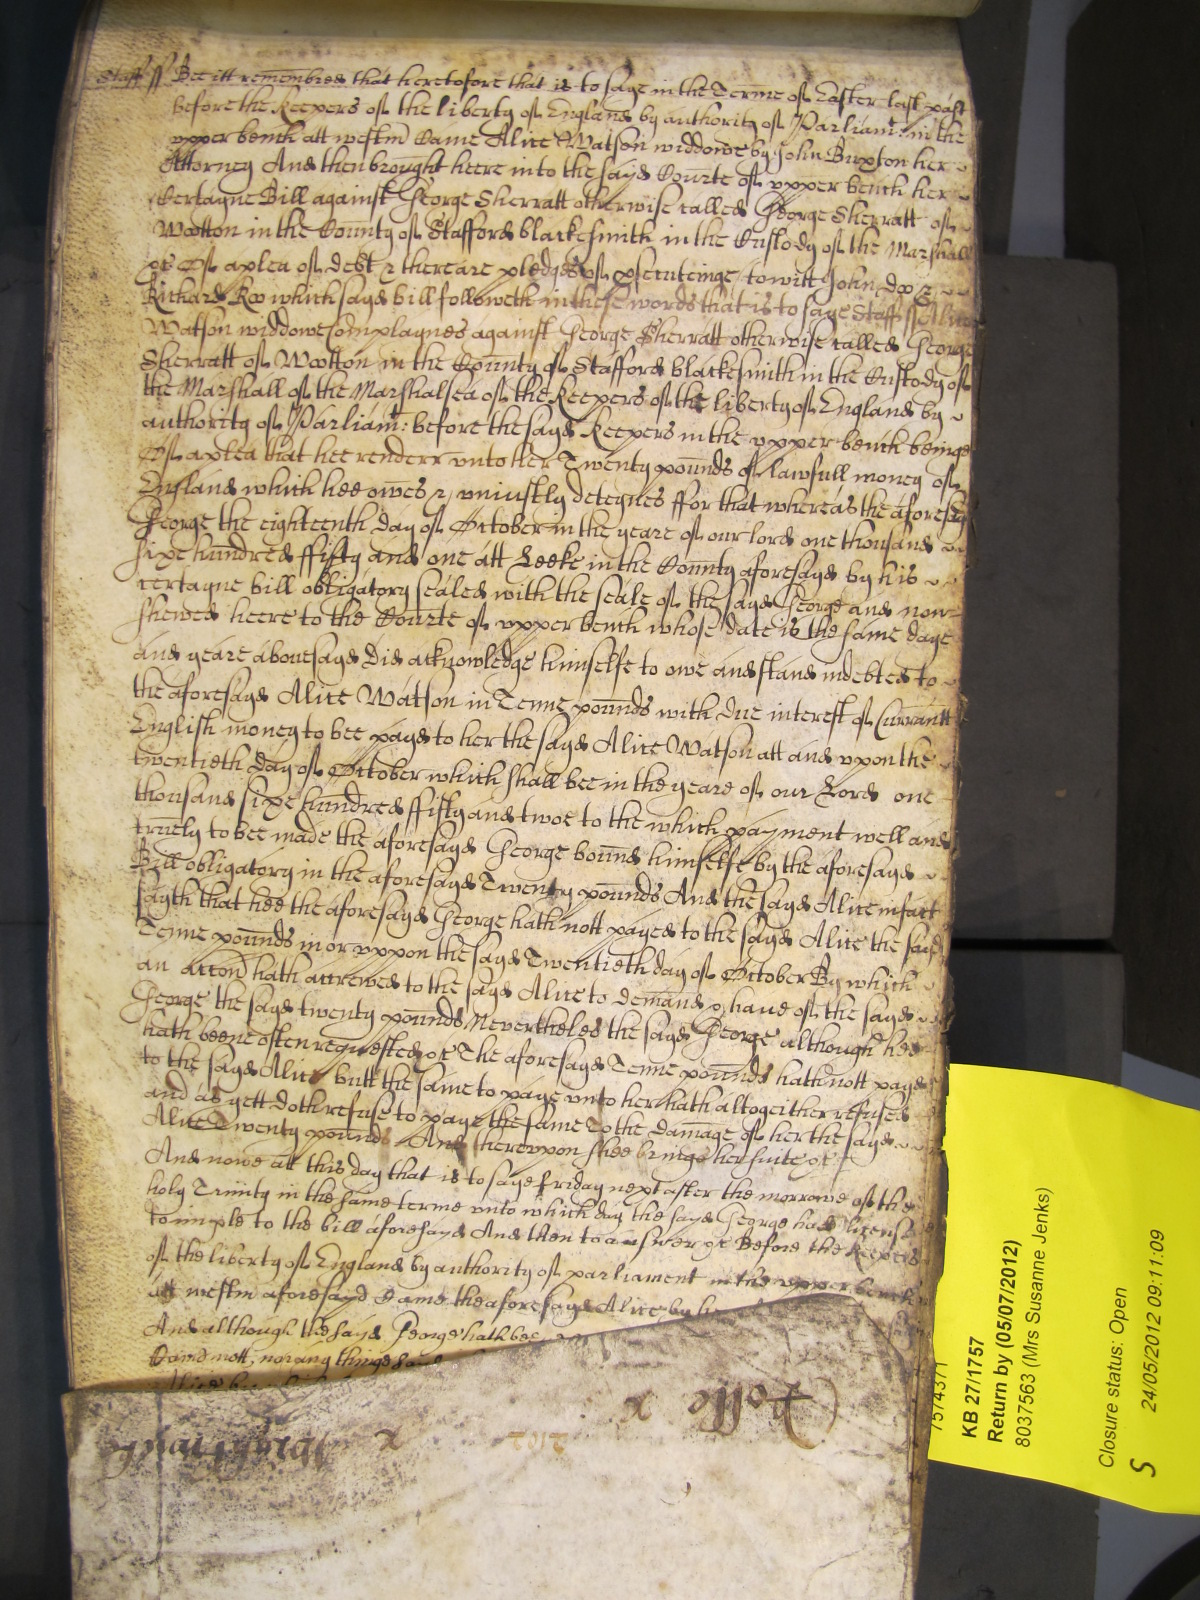 Staff ss Bee itt remembred that heretofore that is to saye in the Terme of Easter last past
before the Keepers of the liberty of England by authority of Parliam: in the
vpper bench att westm Came Alice Watson widdowe by John Buxton her
Attorney And then brought heere into the sayd Courte of vpper bench her
Certayne Bill against George Sherratt otherwise called George Sherratt of
Wootton in the County of Stafford blackesmith in the Custody of the Marshall
&c Of a plea of debt & there are pledges of psecuteinge to witt John doo &
Richard Roo which sayd bill followeth in these words that is to saye Staff ss Alice
Watson widdowe Complaynes against George Sherratt otherwise called George
Sherratt of Wootton in the County of Stafford blackesmith in the Custody of
the Marshall of the Marshalsea of the Keepers of the liberty of England by
authority of Parliam: before the sayd Keepers in the vpper bench beinge
Of a plea that hee renderr vnto her Twenty pounds of lawfull money of
England which hee owes & vniustly deteynes ffor that whereas the aforesayd
George the eighteenth day of October in the yeare of our lord one thousand
sixe hundred ffifty and one att Leeke in the County aforesayd by his
certayne bill obligatory sealed with the seale of the sayd George and now
shewed heere to the Courte of vpper bench whose date is the same daye
and yeare abouesayd did acknowledge himselfe to owe and stand indebted to
the aforesayd Alice Watson in Tenne pounds with due interest of Currantt
English money to bee payd to her the sayd Alice Watson att and vpon the
twentieth day of October which shall bee in the yeare of our Lord one
thousand sixe hundred ffifty and twoe to the which payment well and
truely to bee made the aforesayd George bound himselfe by the aforesayd
Bill obligatory in the aforesayd Twenty pounds And the sayd Alice in fact
sayth that hee the aforesayd George hath nott payed to the sayd Alice the sayd
Tenne pounds in or vppon the sayd Twentieth day of October By which
an accon hath accrewed to the sayd Alice to demand & haue of the sayd
George the sayd twenty pounds Neverthelcs the sayd George although hee
hath beene often requested &c The aforesayd Tenne pounds hath nott payd
to the sayd Alice butt the same to paye vnto her hath altogeither refused
and as yett doth refuse to paye the same To the damage of her the sayd
Alice Twenty pounds And therevpon shee brings her suite &c
And nowe att this day that is to saye Friday next after the morrowe of the
holy Trinity in the same terme vnto which day the sayd George had license
to imple to the bill aforesayd And then to answer &c Before the Keepers
of the liberty of England by authority of parliament in the vpper bench
att westm aforesayd Came the aforesayd Alice by her
And although the sayd George hath bee
Came nott, nor any thinge
KB 27/1757
Return by (05/07/2012)
8037563 (Mrs Susanne Jenks)
Closure status: Open
S 24/05/2012 09:11:09